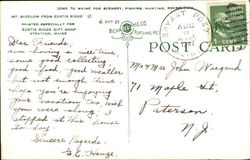 COME TO MAINE FOR SCENERY, FISHING, HUNTING, RECREATION
MT. BIGELOW FROM EUSTIS RIDGE
PRINTED ESPECIALLY FOR
EUSTIS RIDGE GIFT SHOP
STRATTON, MAINE
POST CARD
Dear Friends,
Am having a nice time
some good collecting
good food, good weather
but not enough time.
Hope you're enjoying
your vacation too. Will
see you were along. I
stopped at this house
to day.
Sincere Regards.
G.E. Hauge.
AUG
Mr & Mrs John Wiegand
71 Maple St,
Paterson
N.J.